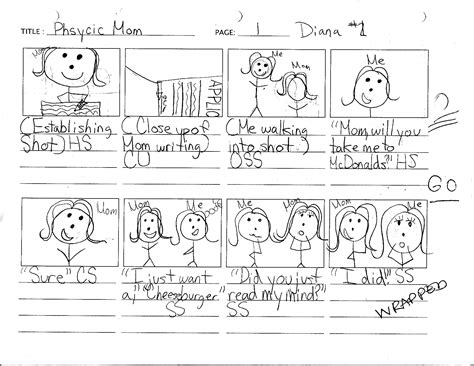 TITLE: Phsycic Mom PAGE: 1 Diana #1
Mom
APPLIC
Me
Mom
Me
(Establishing
Shot) HS
(Close up of
Mom writing)
CU
(Me walking
into shot.)
OSS
"Mom will you
take me to
McDonalds?" HS
GO
Mom
Mom
Me
Mom
Me
Mom
Me
"Sure" CS
"I just want
a "Cheezburger"
SS
"Did you just
read my mind?"
SS
"I did!" SS
WRAPPED